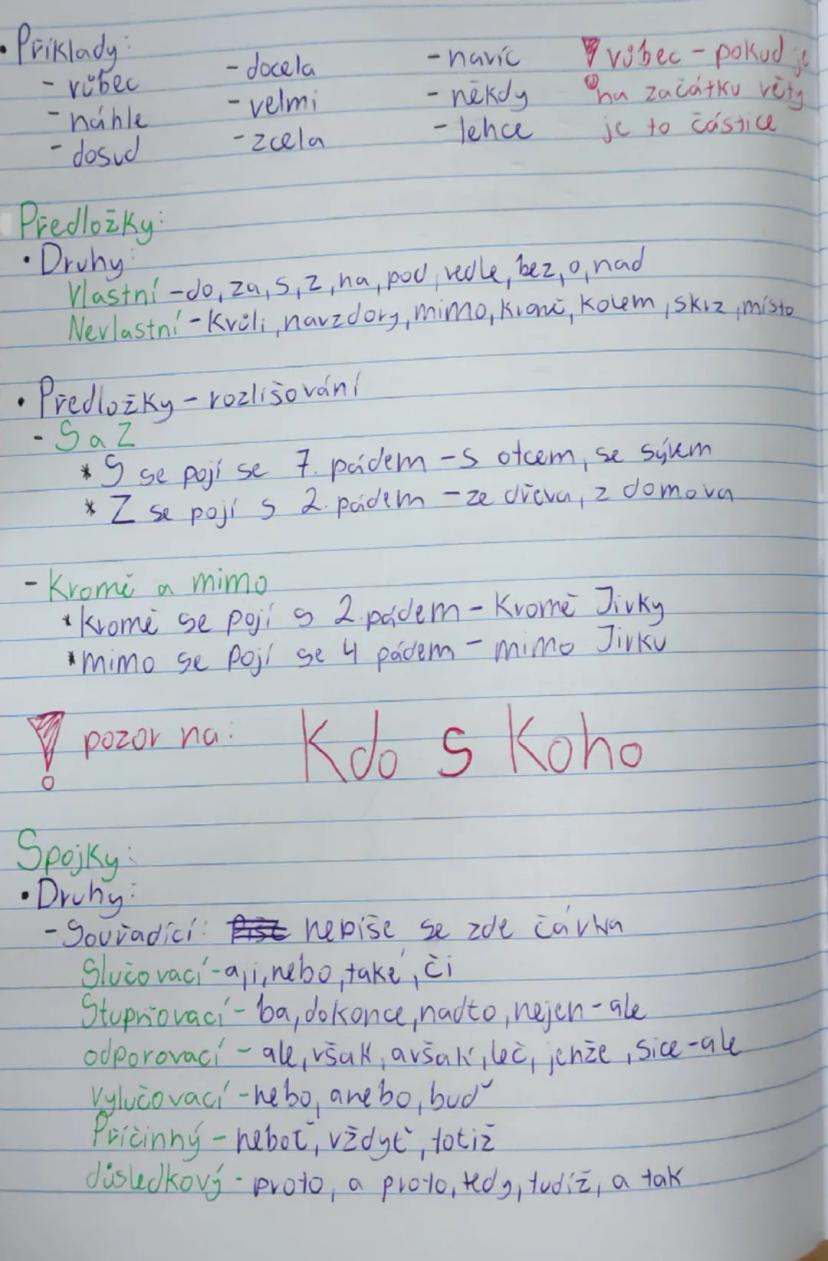 • Příklady:
- vůbec - docela - navíc ! vůbec - pokud je
- náhle - velmi - někdy na začátku věty
- dosud - zcela - lehce je to částice
Předložky:
• Druhy:
Vlastní - do, za, s, z, na, pod, vedle, bez, o, nad
Nevlastní - kvůli, navzdory, mimo, kromě, kolem, skrz, místo
• Předložky - rozlišování
- S a Z
* S se pojí se 7. pádem - s otcem, se sýkem
* Z se pojí s 2. pádem - ze dřeva, z domova
- Kromě a mimo
* kromě se pojí s 2. pádem - Kromě Jirky
* mimo se pojí se 4 pádem - mimo Jirku
! pozor na: Kdo s koho
Spojky:
• Druhy:
- Souřadící: nepíše se zde čárka
Slučovací - a, i, nebo, také, či
Stupňovací - ba, dokonce, nadto, nejen - ale
odporovací - ale, však, avšak, leč, jenže, sice - ale
Vylučovací - nebo, anebo, buď
Příčinný - neboť, vždyť, totiž
důsledkový - proto, a proto, tedy, tudíž, a tak